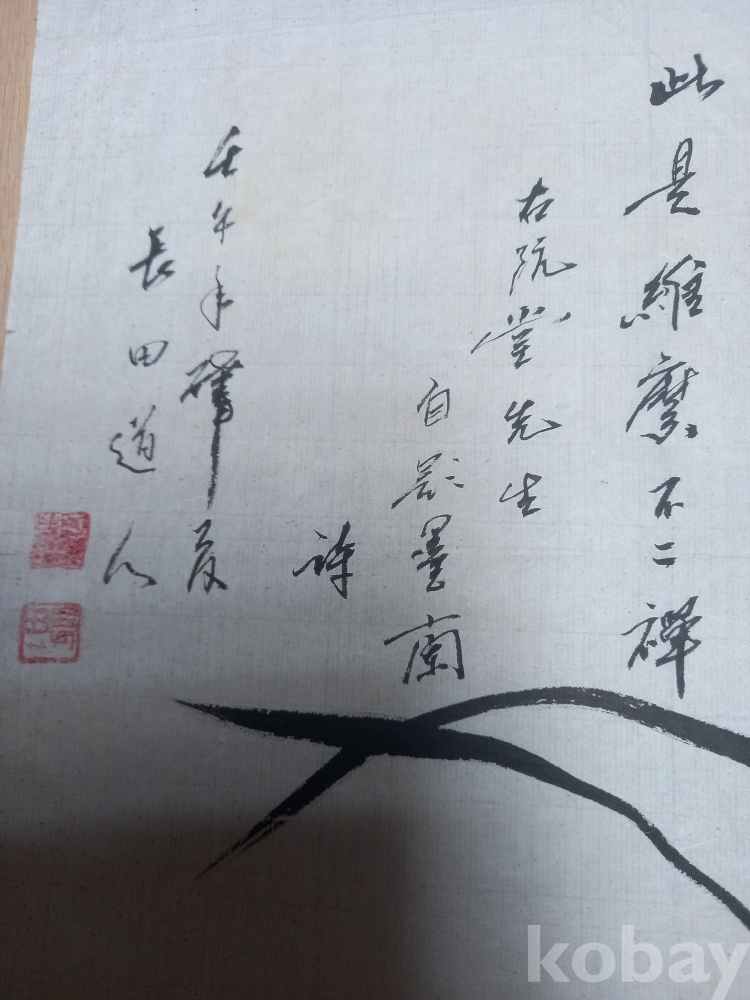 此是維摩不二禪
右阮堂先生
自題墨蘭
詩
壬午年肇夏
長田道人
kobay